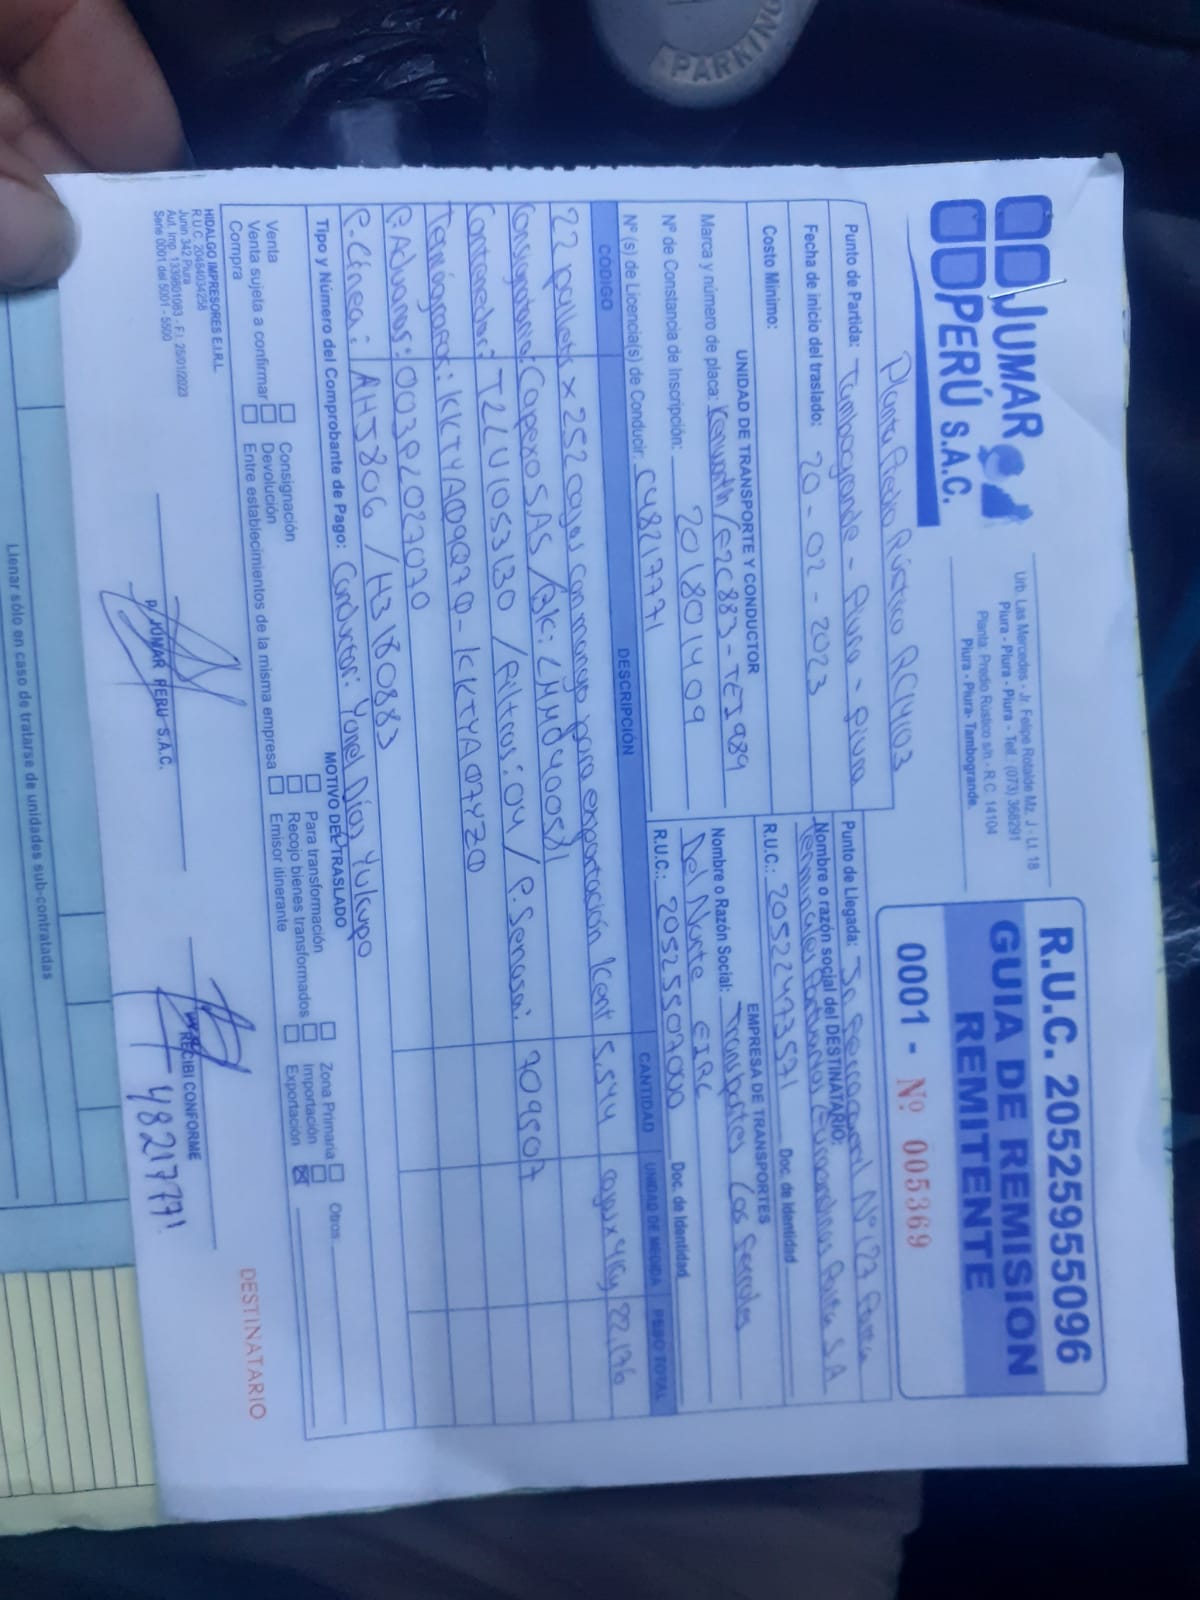 PARKING
JUMAR
PERÚ S.A.C.
Urb. Las Mercedes - Jr. Felipe Rotalde Mz. J - Lt. 18
Piura - Piura - Piura - Telf.: (073) 368291
Planta: Predio Rustico s/n - R.C. 14104
Piura - Piura - Tambogrande.
R.U.C. 20525955096
GUIA DE REMISION
REMITENTE
0001 - Nº 005369
Planta Predio Rústico RC14103
Punto de Partida: Tambogrande - Piura - Piura
Punto de Llegada: Jr Ferrocarril Nº 127 Paita
Fecha de inicio del traslado: 20 - 02 - 2023
Nombre o razón social del DESTINATARIO:
Terminales Portuarios Euroandinos Paita S.A
Costo Mínimo:
R.U.C.: 20522473571 Doc. de Identidad
UNIDAD DE TRANSPORTE Y CONDUCTOR
EMPRESA DE TRANSPORTES
Marca y número de placa: Kenworth / F2C883 - TEI989
Nombre o Razón Social: Transportes Los Ferroles
Nº de Constancia de Inscripción: 201801409
Del Norte EIRL
Nº (s) de Licencia(s) de Conducir: C48217771
R.U.C.: 20525507000 Doc. de Identidad
CODIGO DESCRIPCIÓN CANTIDAD UNIDAD DE MEDIDA PESO TOTAL
22 pallets x 252 cajas con mango para exportación Kent 5,544 cajas x 4kg 22,176
Consignatario: Capexo SAS / BK: LMM0400581
Contenedor: TLLU1053130 / Filtros: 04 / P. Senasa: 709507
Termógrafos: KKTYA09Q70 - KKTYA07YZ0
P. Aduanas: 003PL027070
P. Línea: AHJ5806 / H3180883
Tipo y Número del Comprobante de Pago: Conductor: Yonel Días Yulcapo
MOTIVO DEL TRASLADO
Venta Consignación Para transformación Zona Primaria Otros
Venta sujeta a confirmar Devolución Recojo bienes transformados Importación
Compra Entre establecimientos de la misma empresa Emisor itinerante Exportación
HIDALGO IMPRESORES E.I.R.L.
R.U.C. 20484034258
Junin 342 Piura
Aut. Imp. 1339801083 - F.I. 25/01/2023
Serie 0001 del 5001 - 5500
p. JUMAR PERU S.A.C.
RECIBI CONFORME
48217771
DESTINATARIO
Llenar sólo en caso de tratarse de unidades sub-contratadas